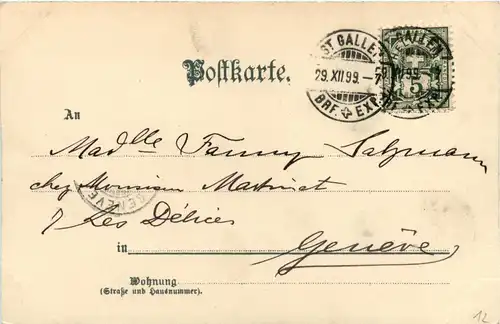 ST GALLEN
29.XII.99.–7
BRF. EXP.
ST GALLEN
5
Postkarte.
An
Madlle Fanny Salzmann
chez Monsieur
GENÈVE
7 Les Délices
in Genève
Wohnung
(Straße und Hausnummer).
12